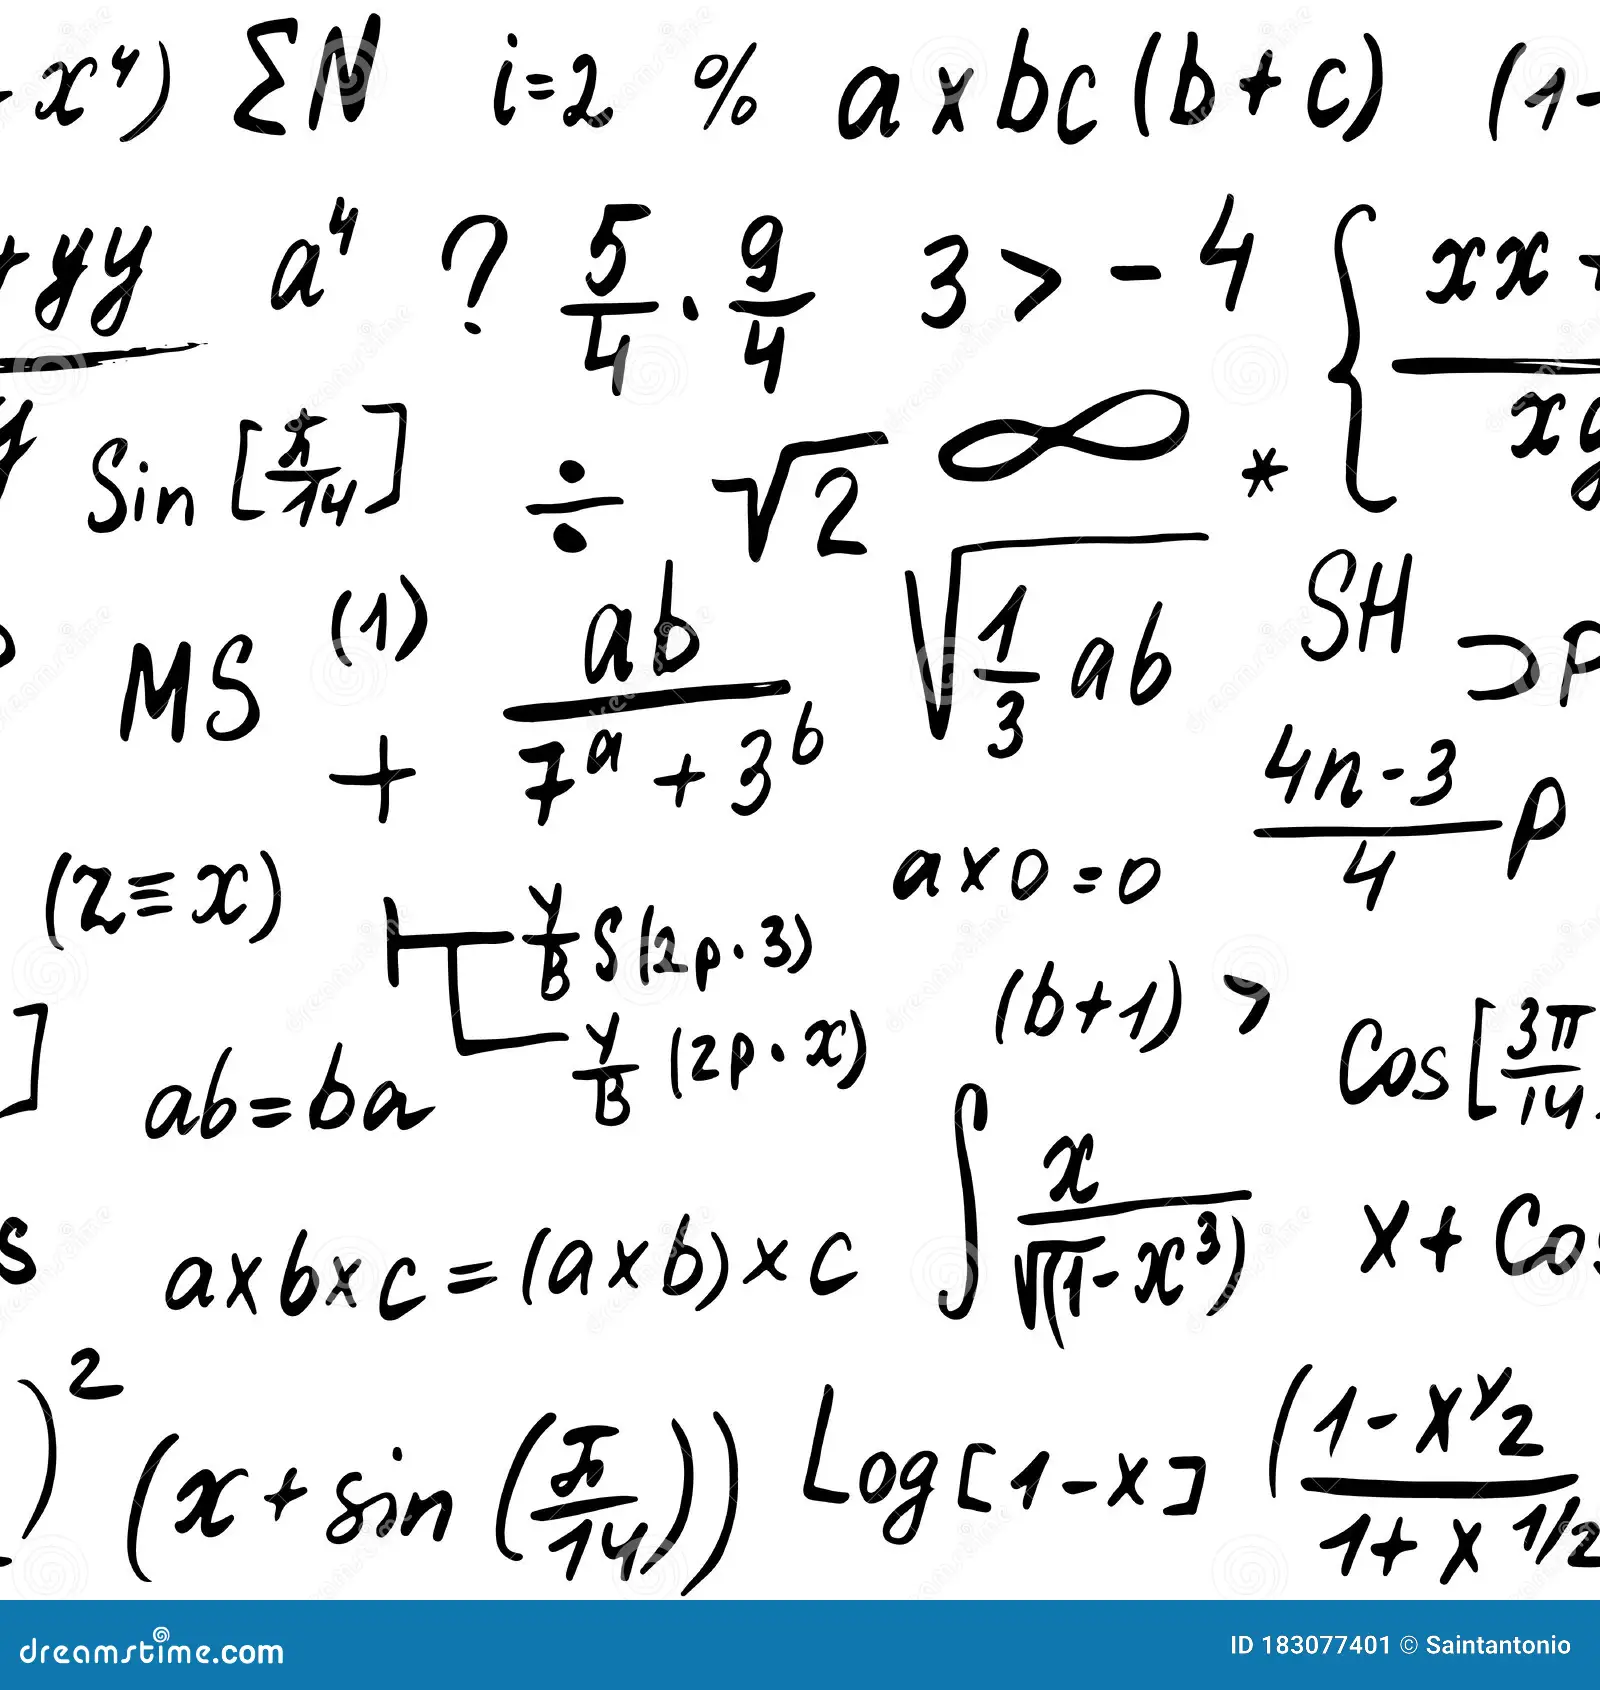 x⁴) ΣN i=2 % axbc(b+c) (1-
+yy a⁴ ? 5/4 · 9/4 3 > -4 { xx +
y xy
Sin [π/14] ÷ √2 ∞ *
MS (1) ab √ 1/3 ab SH ⊃P
+ 7ᵃ + 3ᵇ 4n-3
4 P
(z≡x) Y/B S(2p·3) ax0=0
] ab=ba Y/B (2p·x) (b+1) > Cos[3π/14
s axbxc=(axb)xc ∫ x/√(1-x³) x+Cos
)² (x+sin(π/14)) Log[1-x] (1-xʸ2
1+x 1/2
dreamstime.com ID 183077401 © Saintantonio